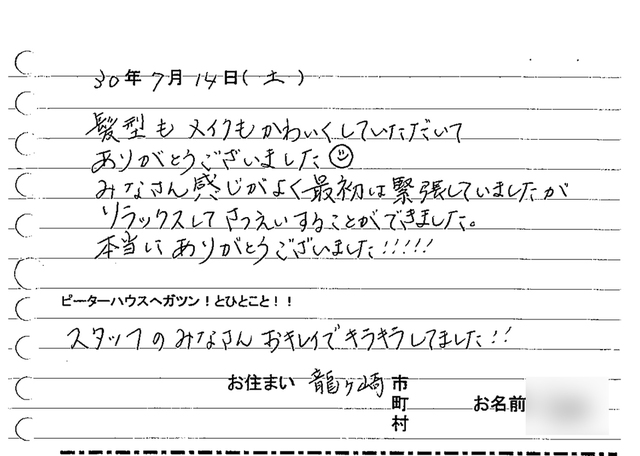 30年7月14日(土)
髪型も メイクもかわいくしていただいて
ありがとうございました☺
みなさん感じがよく最初は緊張していましたが
リラックスしてさつえいすることができました。
本当に ありがとうございました!!!!!
ピーターハウスへガツン!とひとこと!!
スタッフのみなさん おキレイでキラキラしてました!!
お住まい 龍ヶ崎 市
町
お名前
村